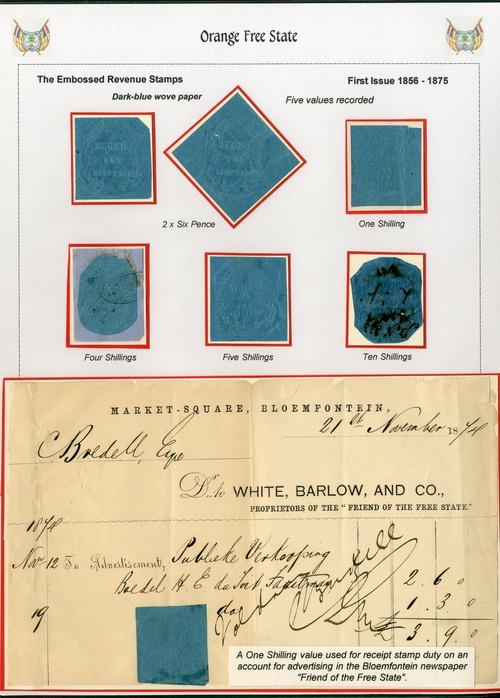 Orange Free State
The Embossed Revenue Stamps
First Issue 1856 - 1875
Dark-blue wove paper
Five values recorded
ZEGEL
VAN
ZES PENCE
ZEGEL
VAN
2 x Six Pence
One Shilling
Four Shillings
Five Shillings
Ten Shillings
MARKET-SQUARE, BLOEMFONTEIN,
21st November 1874
C Bredell, Esqe
Dr. to WHITE, BARLOW, AND CO.,
PROPRIETORS OF THE "FRIEND OF THE FREE STATE."
1874
Novr 12 To Advertisement, Publieke Verkooping
Boedel H. E. du Toit 2. 6. 0
19 do 1. 3. 0
£ 3. 9. 0
A One Shilling value used for receipt stamp duty on an
account for advertising in the Bloemfontein newspaper
"Friend of the Free State".